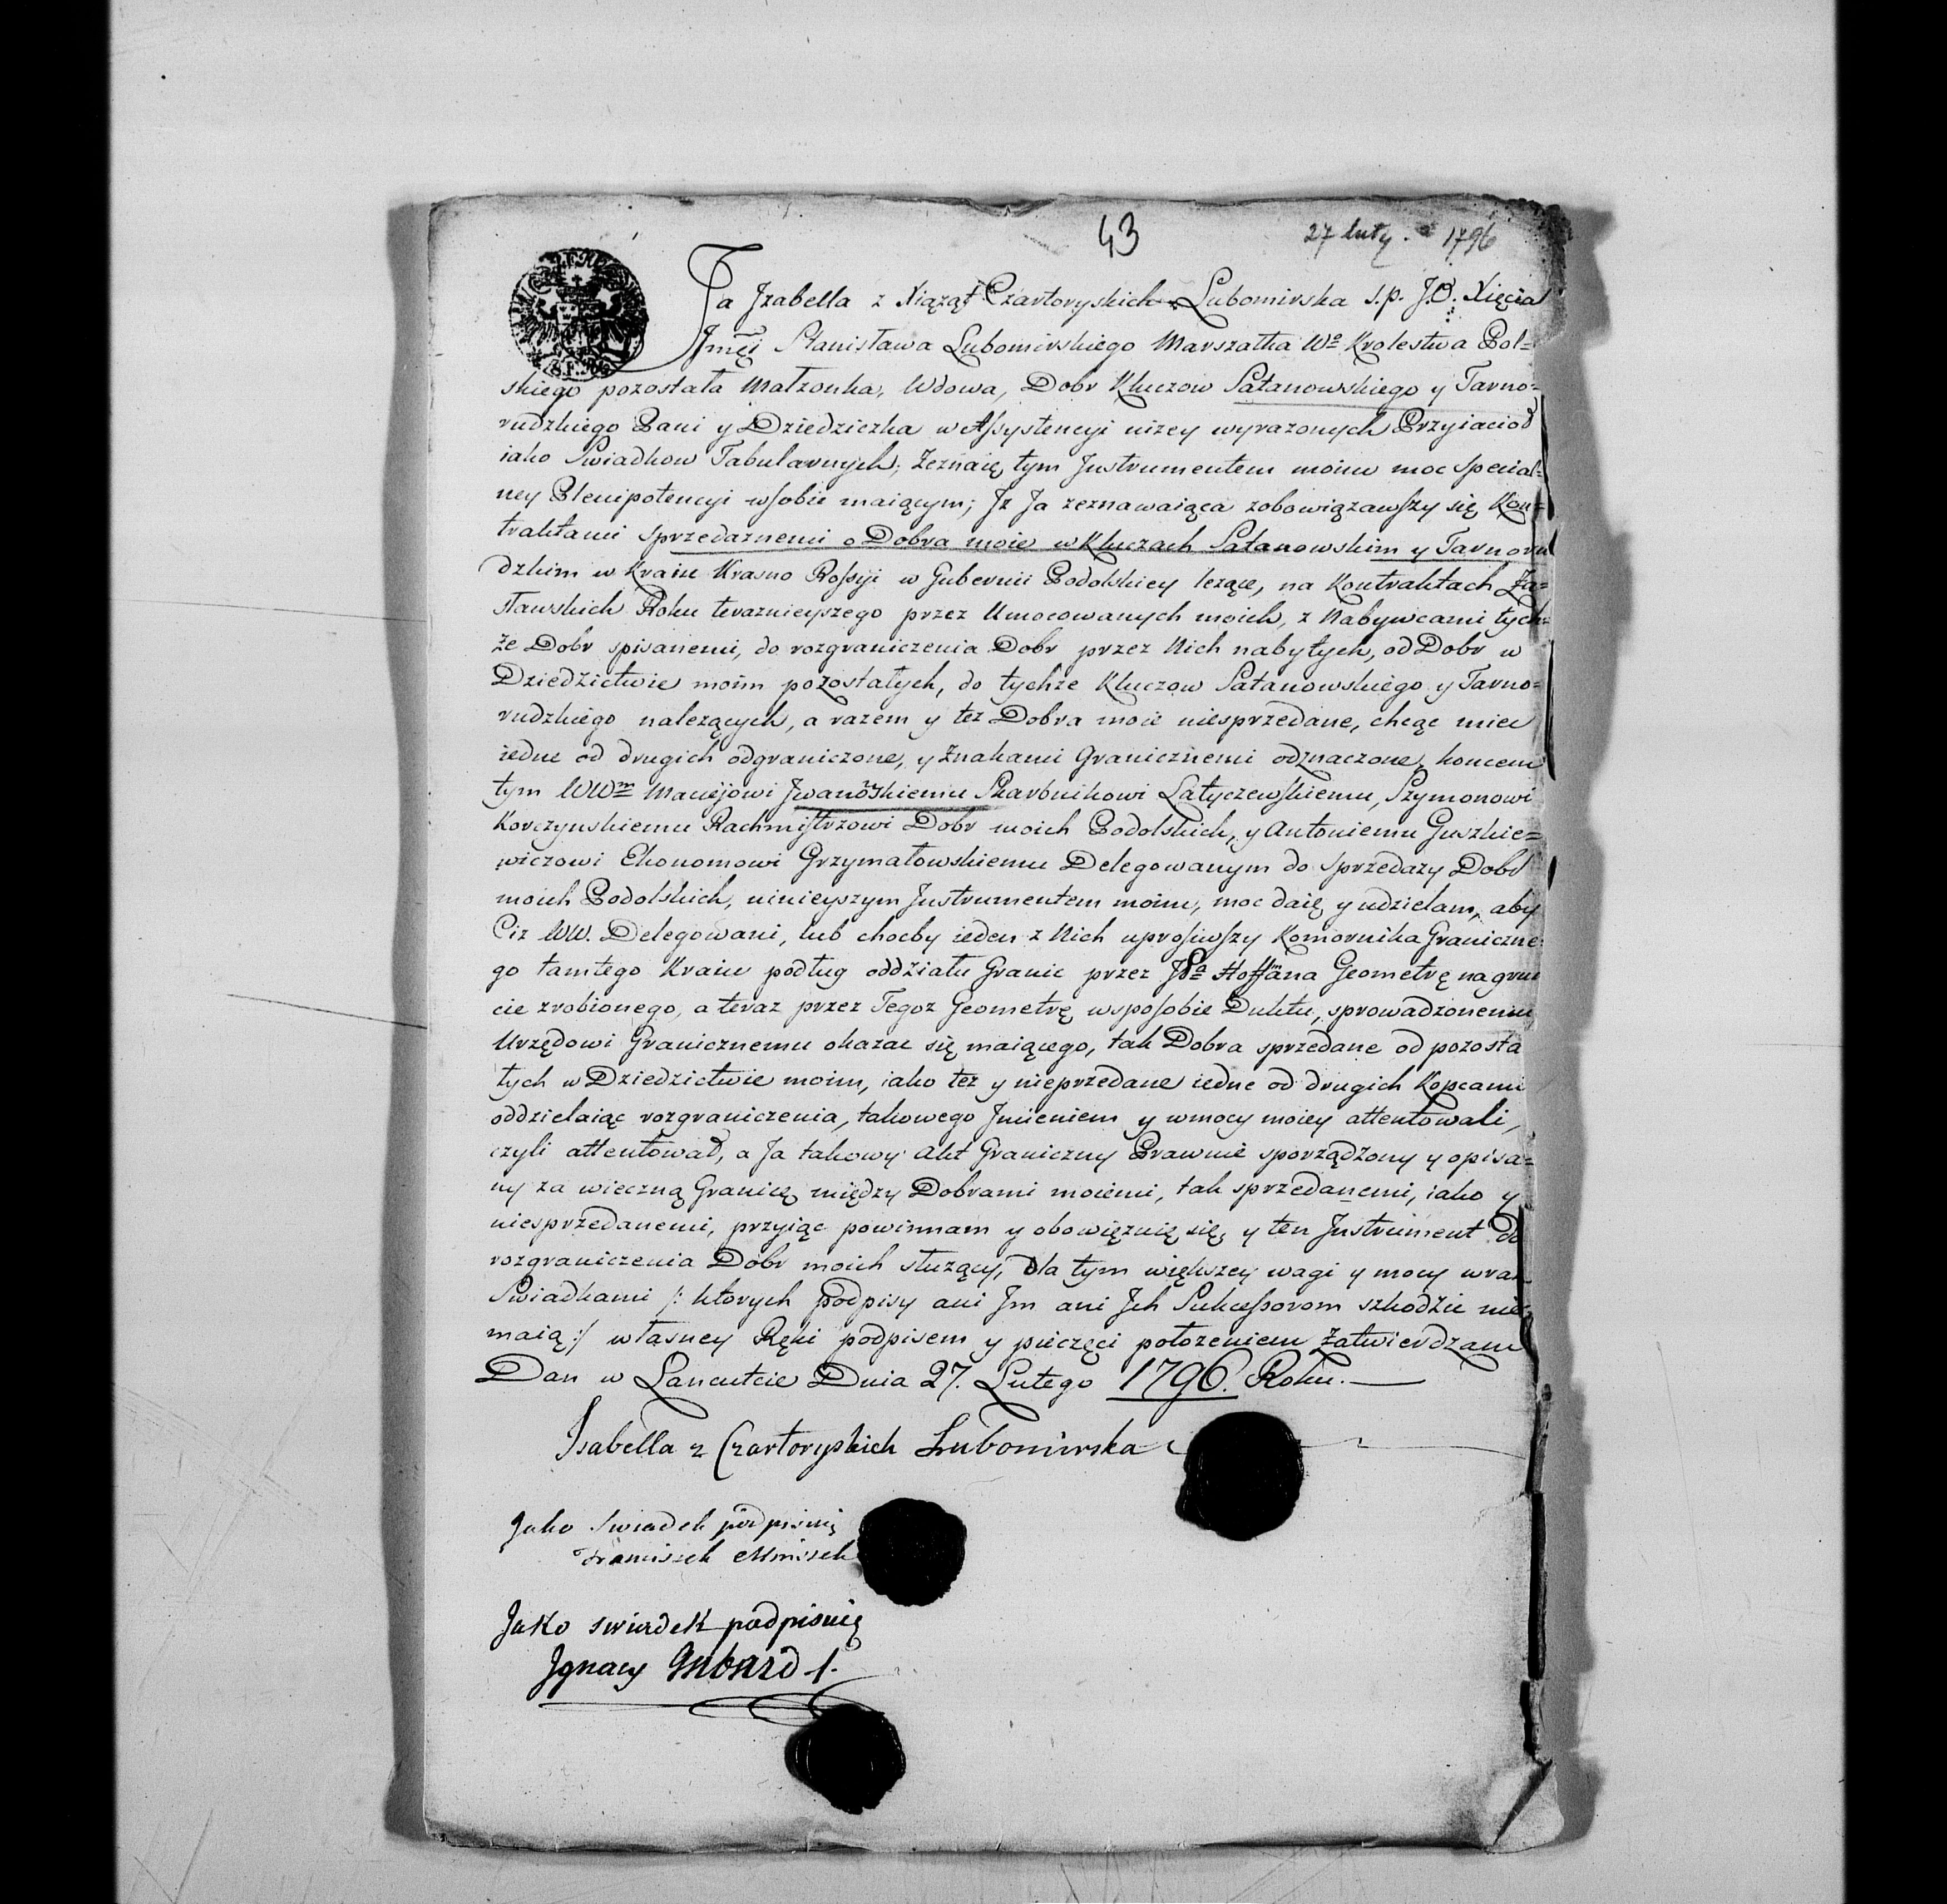 43
27 luty. 1796
Ja Jzabella z Xiąząt Czartoryskich Lubomirska s.p. J.O. Xięcia
Jmći Stanisława Lubomirskiego Marszałka Wo Krolestwa Pol=
skiego pozostała Małzonka, Wdowa, Dobr Kluczow Satanowskiego y Tarno=
rudzkiego Pani y Dziedziczka w Assystencyi nizey wyrazonych Przyiacioł
iako Swiadkow Tabularnych, Zeznaię tym Jnstrumentem moim moc special=
ney Plenipotencyi wsobie maiącym; Jz Ja zeznawaiąca zobowiązawszy się Kon=
traktami sprzedaznemi o Dobra moie w Kluczach Satanowskim y Tarnoru
dzkim w Kraiu Krasno Rossyi w Gubernii Podolskiey lezące, na Kontraktach Za=
sławskich Roku teraznieyszego przez Umocowanych moich, z Nabywcami tych=
ze Dobr spisanemi, do rozgraniczenia Dobr przez Nich nabytych, od Dobr w
Dziedzictwie moim pozostałych, do tychze Kluczow Satanowskiego y Tarno=
rudzkiego nalezących, a razem y tez Dobra moie niesprzedane, chcąc miec
iedne od drugich odgraniczone, y Znakami Granicznemi odznaczone, koncem
tym WWm Maciejowi Jwanowskiemu Skarbnikowi Latyczewskiemu, Szymonowi
Korczynskiemu Rachmistrzowi Dobr moich Podolskich, y Antoniemu Guszkie=
wiczowi Ekonomowi Grzymałowskiemu Delegowanym do sprzedazy Dobr
moich Podolskich, ninieyszym Jnstrumentem moim, moc daię y udzielam, aby
Ciz WW. Delegowani, lub choćby ieden z Nich uprosiwszy Komornika Graniczne=
go tamtego Kraiu podług oddziału Granic przez JPa Hoffmana Geometrę na grun
cie zrobionego, a teraz przez Tegoz Geometrę wsposobie Duktu, sprowadzonemu
Urzędowi Granicznemu okazac się maiącego, tak Dobra sprzedane od pozosta
łych w Dziedzictwie moim, iako tez y nieprzedane iedne od drugich Kopcami
oddzielaiąc rozgraniczenia, takowego Jmieniem y wmocy moiey attentowali,
czyli attentował, a Ja takowy Akt Graniczny Prawnie sporządzony y opisa=
ny za wieczną Granicę między Dobrami moiemi, tak sprzedanemi, iako y
niesprzedanemi, przyiąc powinnam y obowięzuię się, y ten Jnstrument do
rozgraniczenia Dobr moich słuzący, dla tym większey wagi y mocy wraz
Swiadkami /: ktorych podpisy ani Jm ani Jch Sukcessorom szkodzic nie
maią :/ własney Ręki podpisem y pieczęci połozeniem Zatwierdzam
Dan w Lancutcie Dnia 27. Lutego 1796. Roku.
Isabella z Czartoryskich Lubomirska
Jako Swiadek podpisuię
Franciszek Mniszek
Jako swiadek podpisuię
Jgnacy